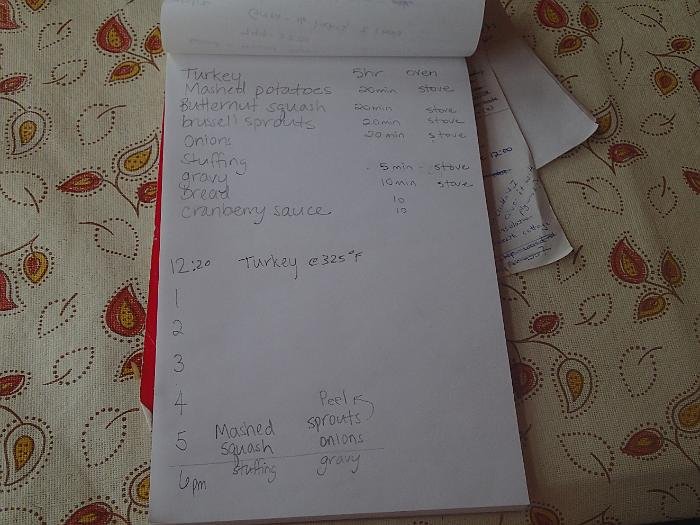 Turkey 5hr oven
Mashed potatoes 20min stove
Butternut squash 20min stove
brussell sprouts 20min stove
Onions 20min stove
Stuffing 5 min - stove
gravy 10min stove
Bread 10
cranberry sauce 10
12:20 Turkey @ 325°F
1
2
3
4 Peel
sprouts
5 Mashed squash onions
6pm stuffing gravy
12:00